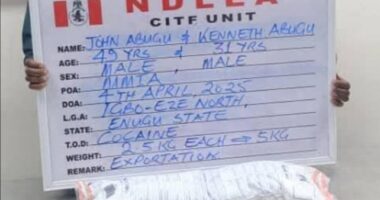 NDLEA
CITF UNIT
NAME: JOHN ABUGU & KENNETH ABUGU
AGE: 49 YRS & 31 YRS
SEX: MALE, MALE
POA: MMIA
DOA: 4TH APRIL 2025
L.G.A: IGBO-EZE NORTH,
STATE: ENUGU STATE
T.O.D: COCAINE
WEIGHT: 2.5KG EACH → 5KG
REMARK: EXPORTATION